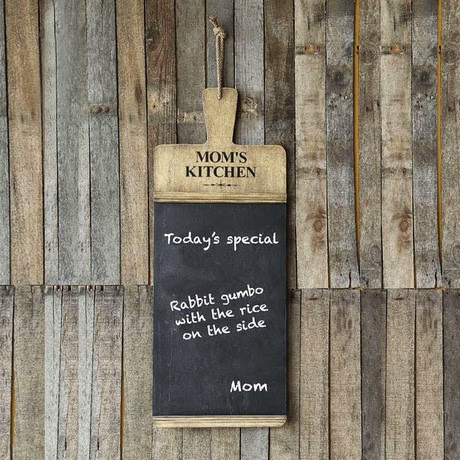 MOM'S
KITCHEN
Today's special
Rabbit gumbo
with the rice
on the side
Mom